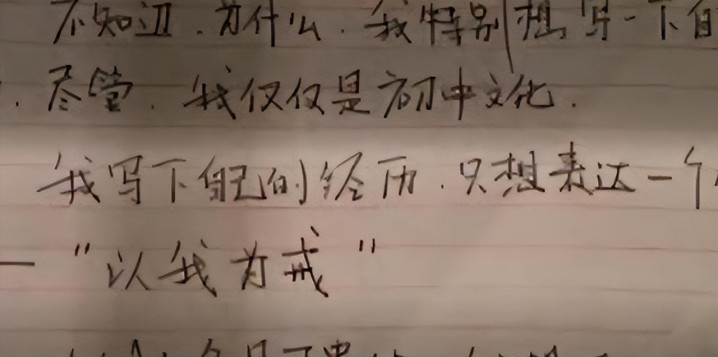 不知道.为什么.我特别想写一下自
.尽管.我仅仅是初中文化.
我写下自己的经历.只想表达一个
一"以我为戒"